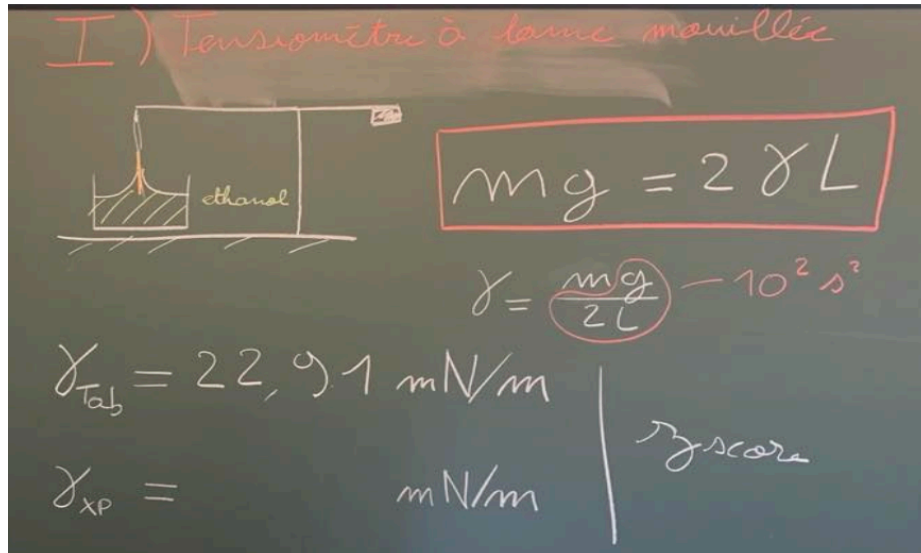 I) Tensiomètre à lame mouillée
ethanol
mg = 2 γ L
γ = mg / 2L — 10² s²
γ_Tab = 22,91 mN/m
γ_XP = mN/m
z score